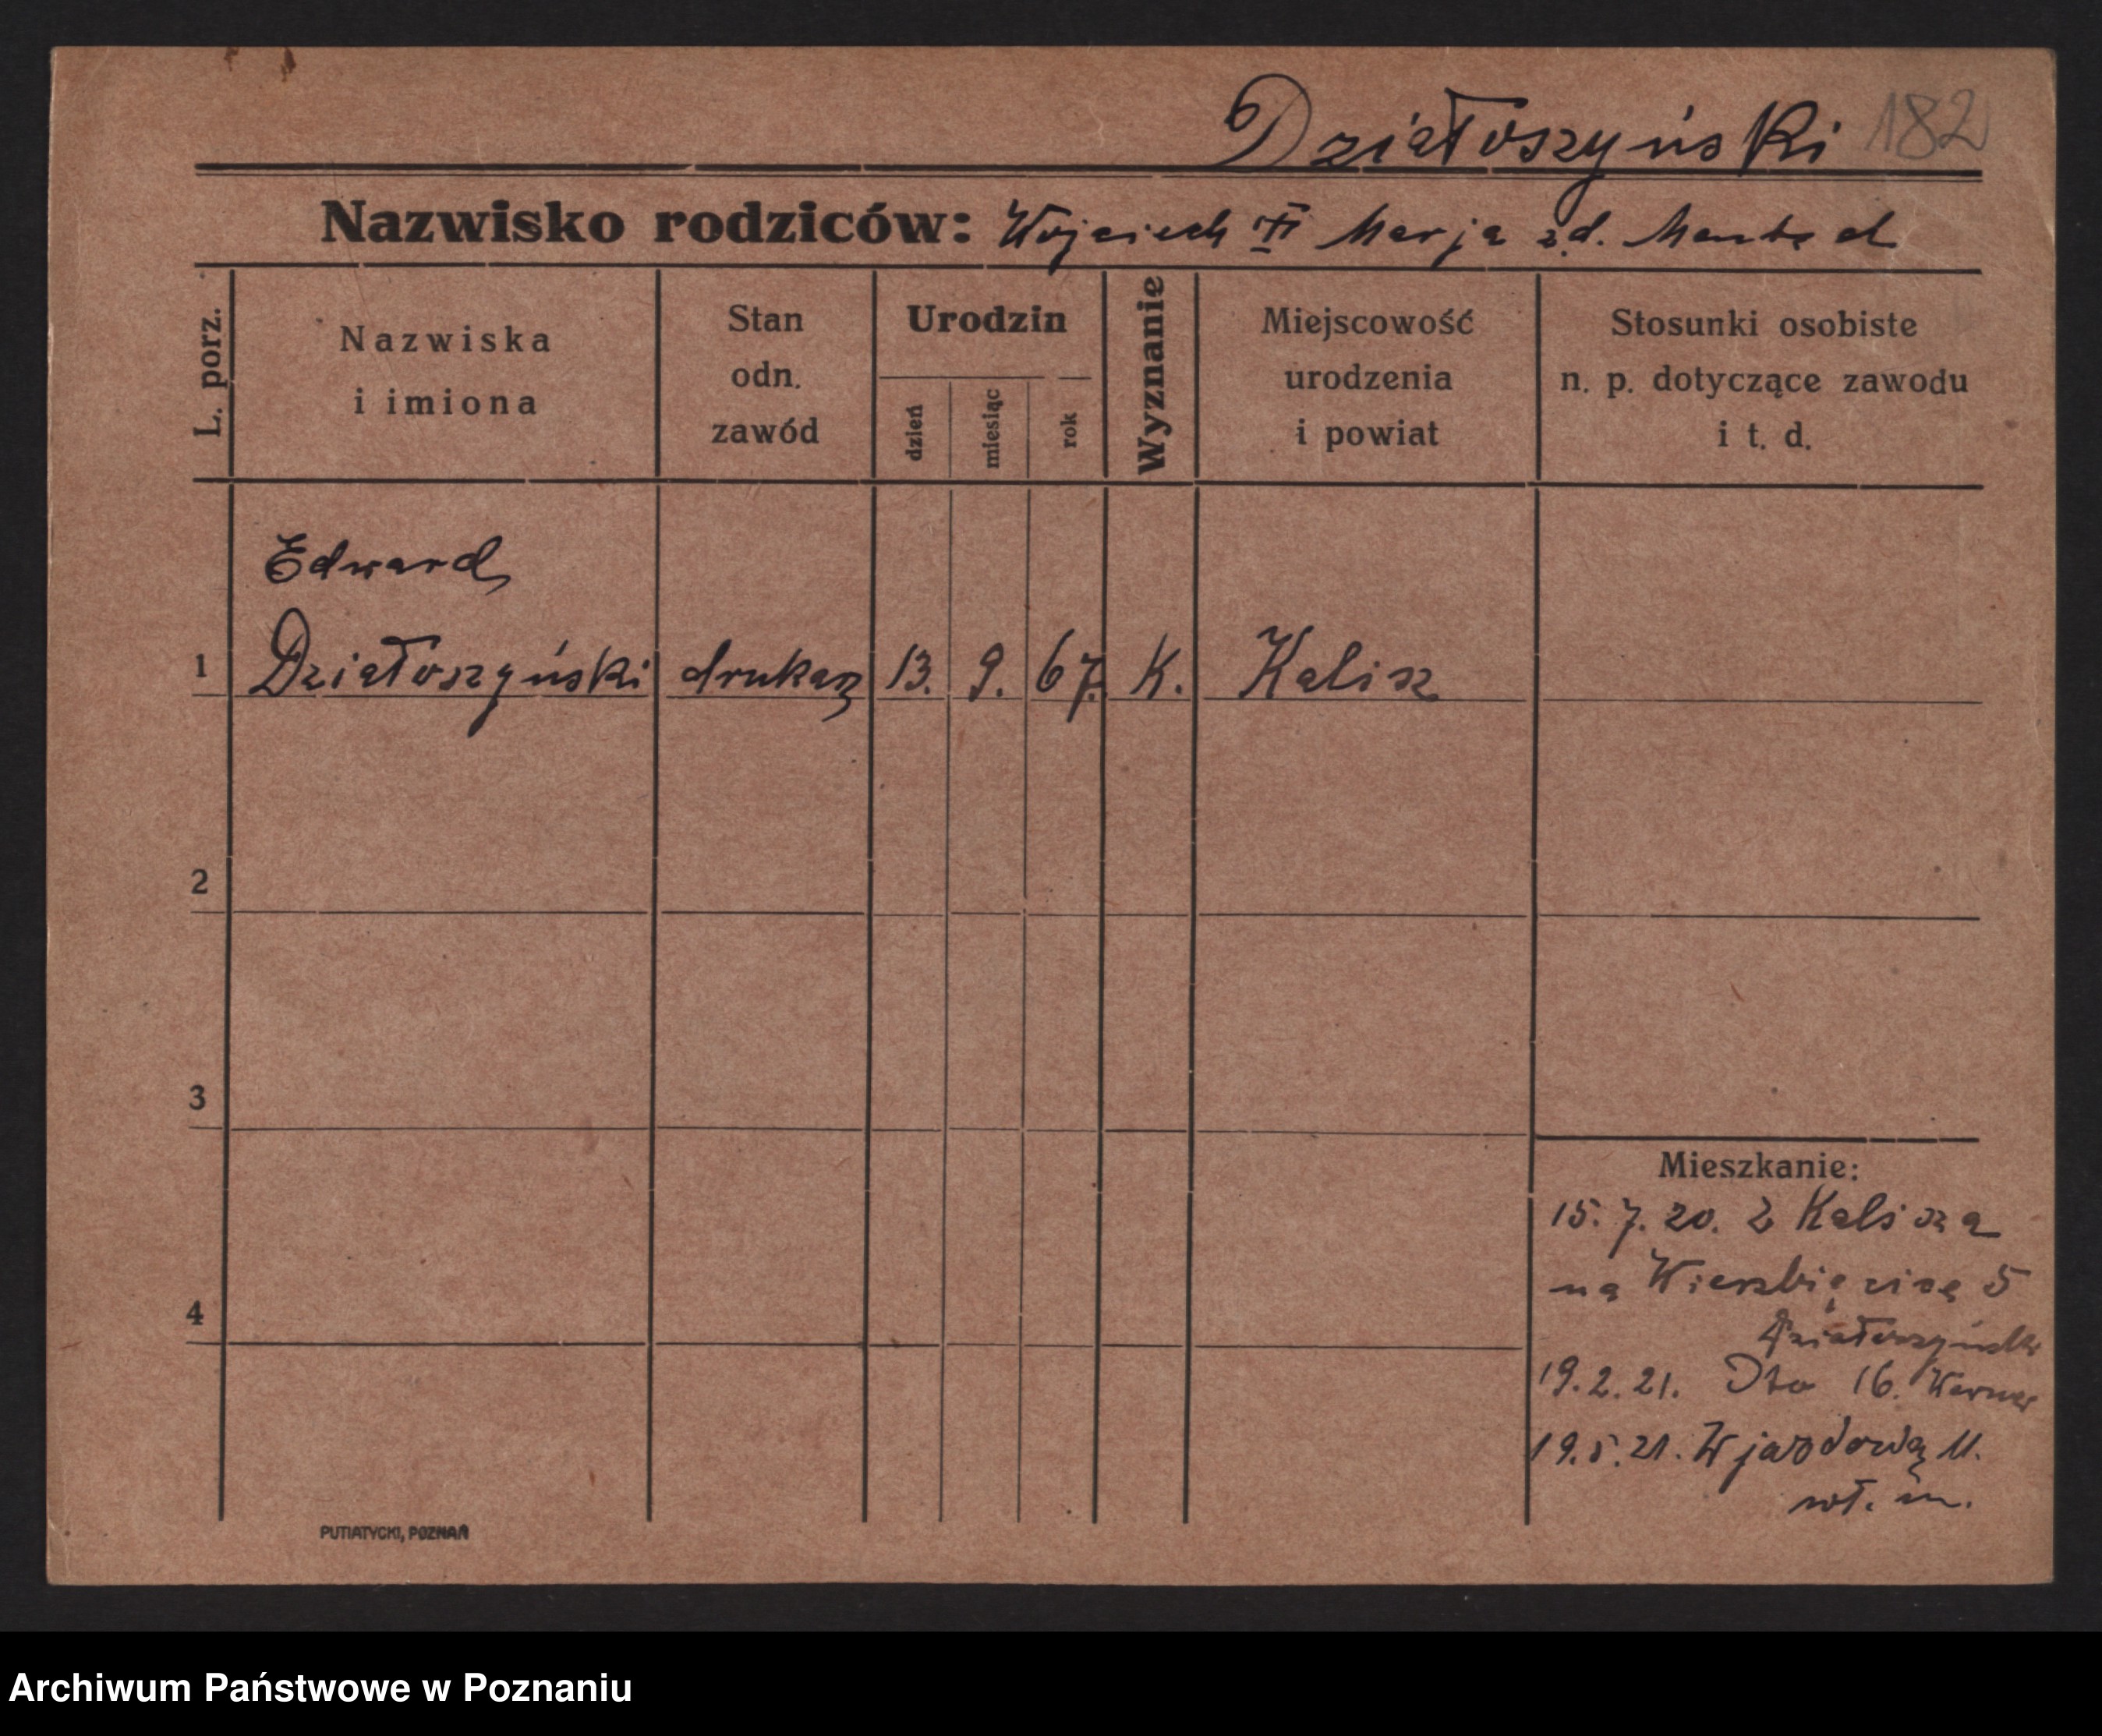 Działoszyński 182
Nazwisko rodziców: Wojciech Marja z d.
L. porz.
Nazwiska
i imiona
Stan
odn.
zawód
Urodzin
dzień
miesiąc
rok
Wyznanie
Miejscowość
urodzenia
i powiat
Stosunki osobiste
n. p. dotyczące zawodu
i t. d.
Edward
1 Działoszyński drukarz 13. 9. 67. K. Kalisz
2
3
4
Mieszkanie:
15. 7. 20. Z Kalisza
na Wierzbięcice 5
Działoszyński
19. 2. 21. Dto 16. Werner
19. 5. 21. Wjazdową 11.
wł. m.
PUTIATYCKI, POZNAŃ
Archiwum Państwowe w Poznaniu